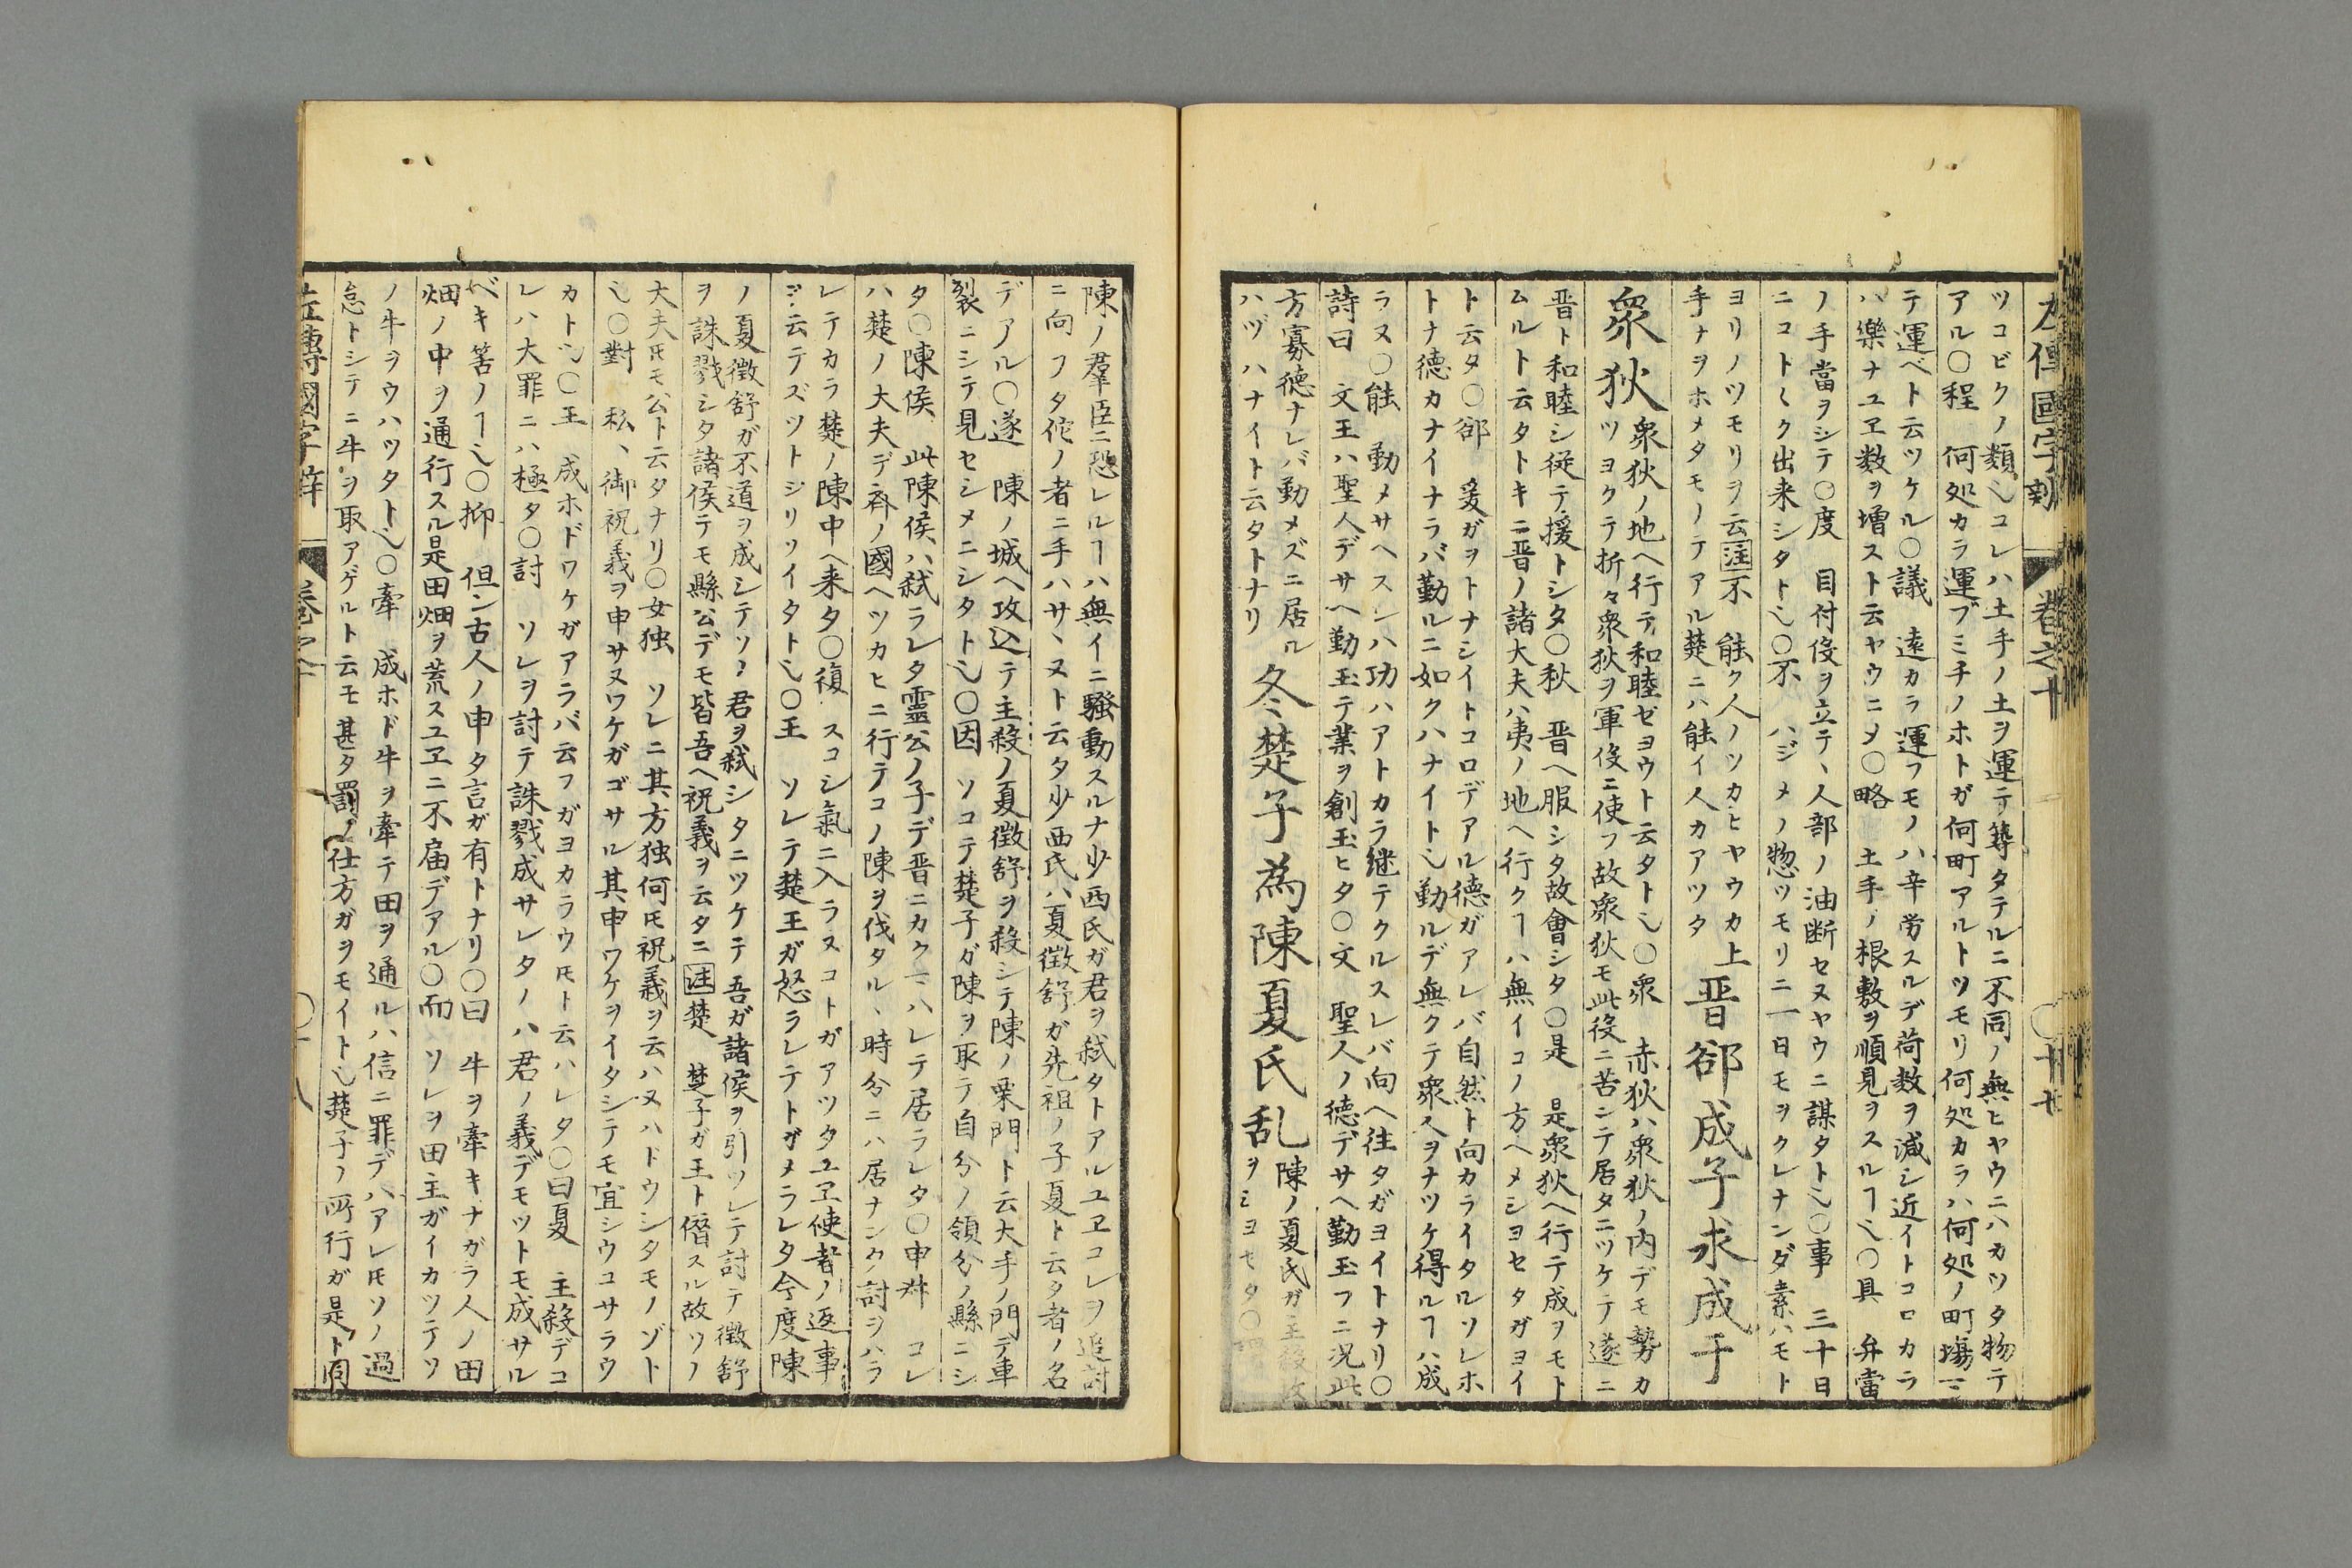 左傳國字辯 卷之十 〇十七
ツコビクノ類乀コレハ土手ノ土ヲ運テ築タテルニ不同ノ無ヒヤウニハカツタ物テ
アル〇程 何処カラ運ブミチノホトガ何町アルトツモリ何処カラハ何処ノ町場ニ
テ運ベト云ツケル〇議 遠カラ運フモノハ辛労スルデ荷数ヲ減シ近イトコロカラ
ハ樂ナユヱ数ヲ増スト云ヤウニメ〇略 土手ノ根敷ヲ順見ヲスルヿ乀〇具 弁當
ノ手當ヲシテ〇度 目付役ヲ立テ丶人部ノ油断セヌヤウニ謀タト乀〇事 三十日
ニコト〱ク出来シタト乀〇不 ハジメノ惣ツモリニ一日モヲクレナンダ素ハモト
ヨリノツモリヲ云注不 能ク人ノツカヒヤウカ上
手ナヲホメタモノテアル楚ニハ能イ人カアツタ
晋郤成子求成于
衆狄
衆狄ノ地ヘ行テ和睦ゼヨウト云タト乀〇衆 赤狄ハ衆狄ノ内デモ勢カ
ツヨクテ折々衆狄ヲ軍役ニ使フ故衆狄モ此役ニ苦ンテ居タニツケテ遂ニ
晋ト和睦シ従テ援トシタ〇秋 晋ヘ服シタ故會シタ〇是 是衆狄ヘ行テ成ヲモト
ムルト云タトキニ晋ノ諸大夫ハ夷ノ地ヘ行クヿハ無イコノ方ヘメシヨセタガヨイ
ト云タ〇郤 爰ガヲトナシイトコロデアル德ガアレバ自然ト向カライタルソレホ
トナ德カナイナラバ勤ルニ如クハナイト乀勤ルデ無クテ衆人ヲナツケ得ルヿハ成
ラヌ〇能 動メサヘスレハ功ハアトカラ継テクルスレバ向ヘ往タガヨイトナリ〇
詩曰 文王ハ聖人デサヘ勤玉テ業ヲ創玉ヒタ〇文 聖人ノ德デサヘ勤玉フニ況此
方寡德ナレバ勤メズニ居ル
ハヅハナイト云タトナリ
冬楚子為陳夏氏乱
陳ノ夏氏ガ主殺故
ヲシヨモタ〇
陳ノ羣臣ニ恐レルヿハ無イニ騒動スルナ少西氏ガ君ヲ弑タトアルユヱコレヲ追討
ニ向フタ佗ノ者ニ手ハサ丶ヌト云タ少西氏ハ夏徴舒ガ先祖ノ子夏ト云タ者ノ名
デアル〇遂 陳ノ城ヘ攻込テ主殺ノ夏徴舒ヲ殺シテ陳ノ栗門ト云大手ノ門デ車
裂ニシテ見セシメニシタト乀〇因 ソコテ楚子ガ陳ヲ取テ自分ノ領分ノ縣ニシ
タ〇陳侯 此陳侯ハ弑ラレタ靈公ノ子デ晋ニカクマハレテ居ラレタ〇申叔 コレ
ハ楚ノ大夫デ齊ノ國ヘツカヒニ行テコノ陳ヲ伐タル丶時分ニハ居ナンタ討ヲハラ
レテカラ楚ノ陳中ヘ来タ〇復 スコシ氣ニ入ラヌコトガアツタユヱ使者ノ返事
ニ云テズツトシリソイタト乀〇王 ソレテ楚王ガ怒ラレテトガメラレタ今度陳
ノ夏徴舒ガ不道ヲ成シテソノ君ヲ弑シタニツケテ吾ガ諸侯ヲ引ツレテ討テ徴舒
ヲ誅戮シタ諸侯テモ縣公デモ皆吾ヘ祝義ヲ云タニ注楚 楚子ガ王ト僭スル故ソノ
大夫𪜈モ公ト云タナリ〇女独 ソレニ其方独何𪜈祝義ヲ云ハヌハドウシタモノゾト
乀〇對 私丶御祝義ヲ申サヌワケガゴサル其申ワケヲイタシテモ宜シウコサラウ
カト乀〇王 成ホドワケガアラバ云フガヨカラウ𪜈ト云ハレタ〇曰夏 主殺デコ
レハ大罪ニハ極タ〇討 ソレヲ討テ誅戮成サレタノハ君ノ義デモツトモ成サル
ベキ筈ノヿ乀〇抑 但シ古人ノ申タ言ガ有トナリ〇曰 牛ヲ牽キナガラ人ノ田
畑ノ中ヲ通行スル是田畑ヲ荒スユヱニ不届デアル〇而 ソレヲ田主ガイカツテソ
ノ牛ヲウハツタト乀〇牽 成ホド牛ヲ牽テ田ヲ通ルハ信ニ罪デハアレ𪜈ソノ過
怠トシテニ牛ヲ取アゲルト云モ甚タ罰ノ仕方ガヲモイト乀楚子ノ所行ガ是ト同
左傳國字辯 卷之十 〇十八